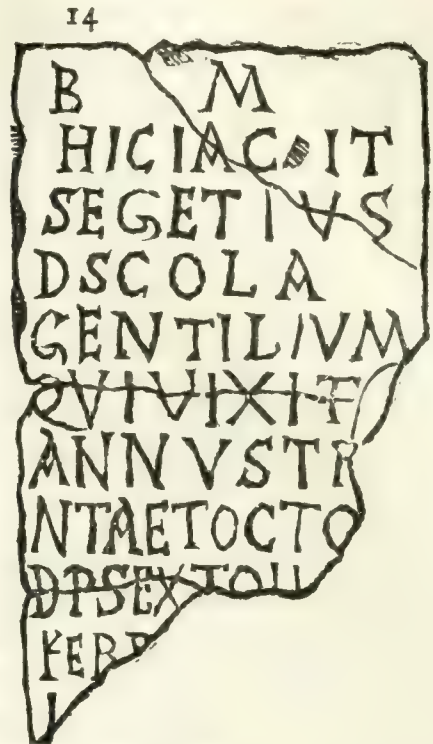 14
B M
HIC IAC IT
SEGETIVS
D SCOLA
GENTILIVM
QVI VIXIT
ANNVS TRI
NTA ET OCTO
DP SEXTO
FEBR